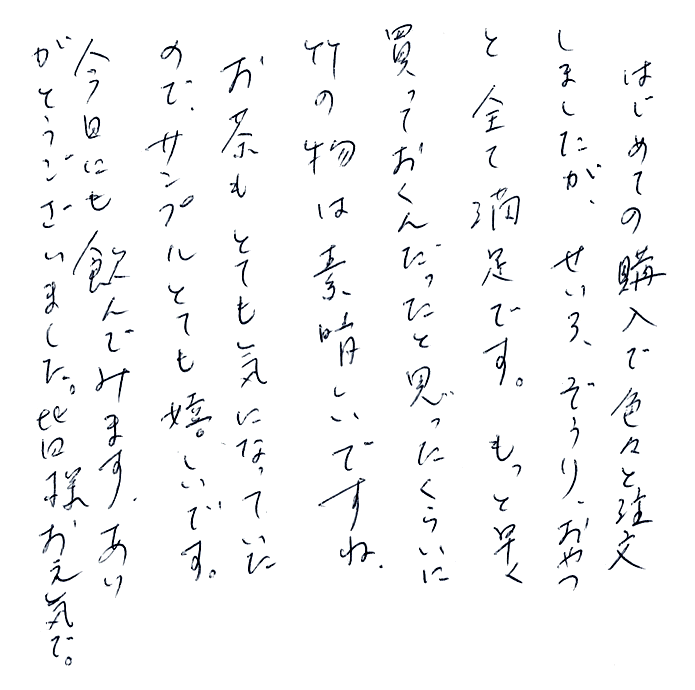 はじめての購入で色々と注文
しましたが、せいろ、ぞうり、おやつ
と全て満足です。もっと早く
買っておくんだったと思ったくらいに
竹の物は素晴しいですね。
お茶もとても気になっていた
ので、サンプルとても嬉しいです。
今日にも飲んでみます。あり
がとうございました。皆様お元気で。